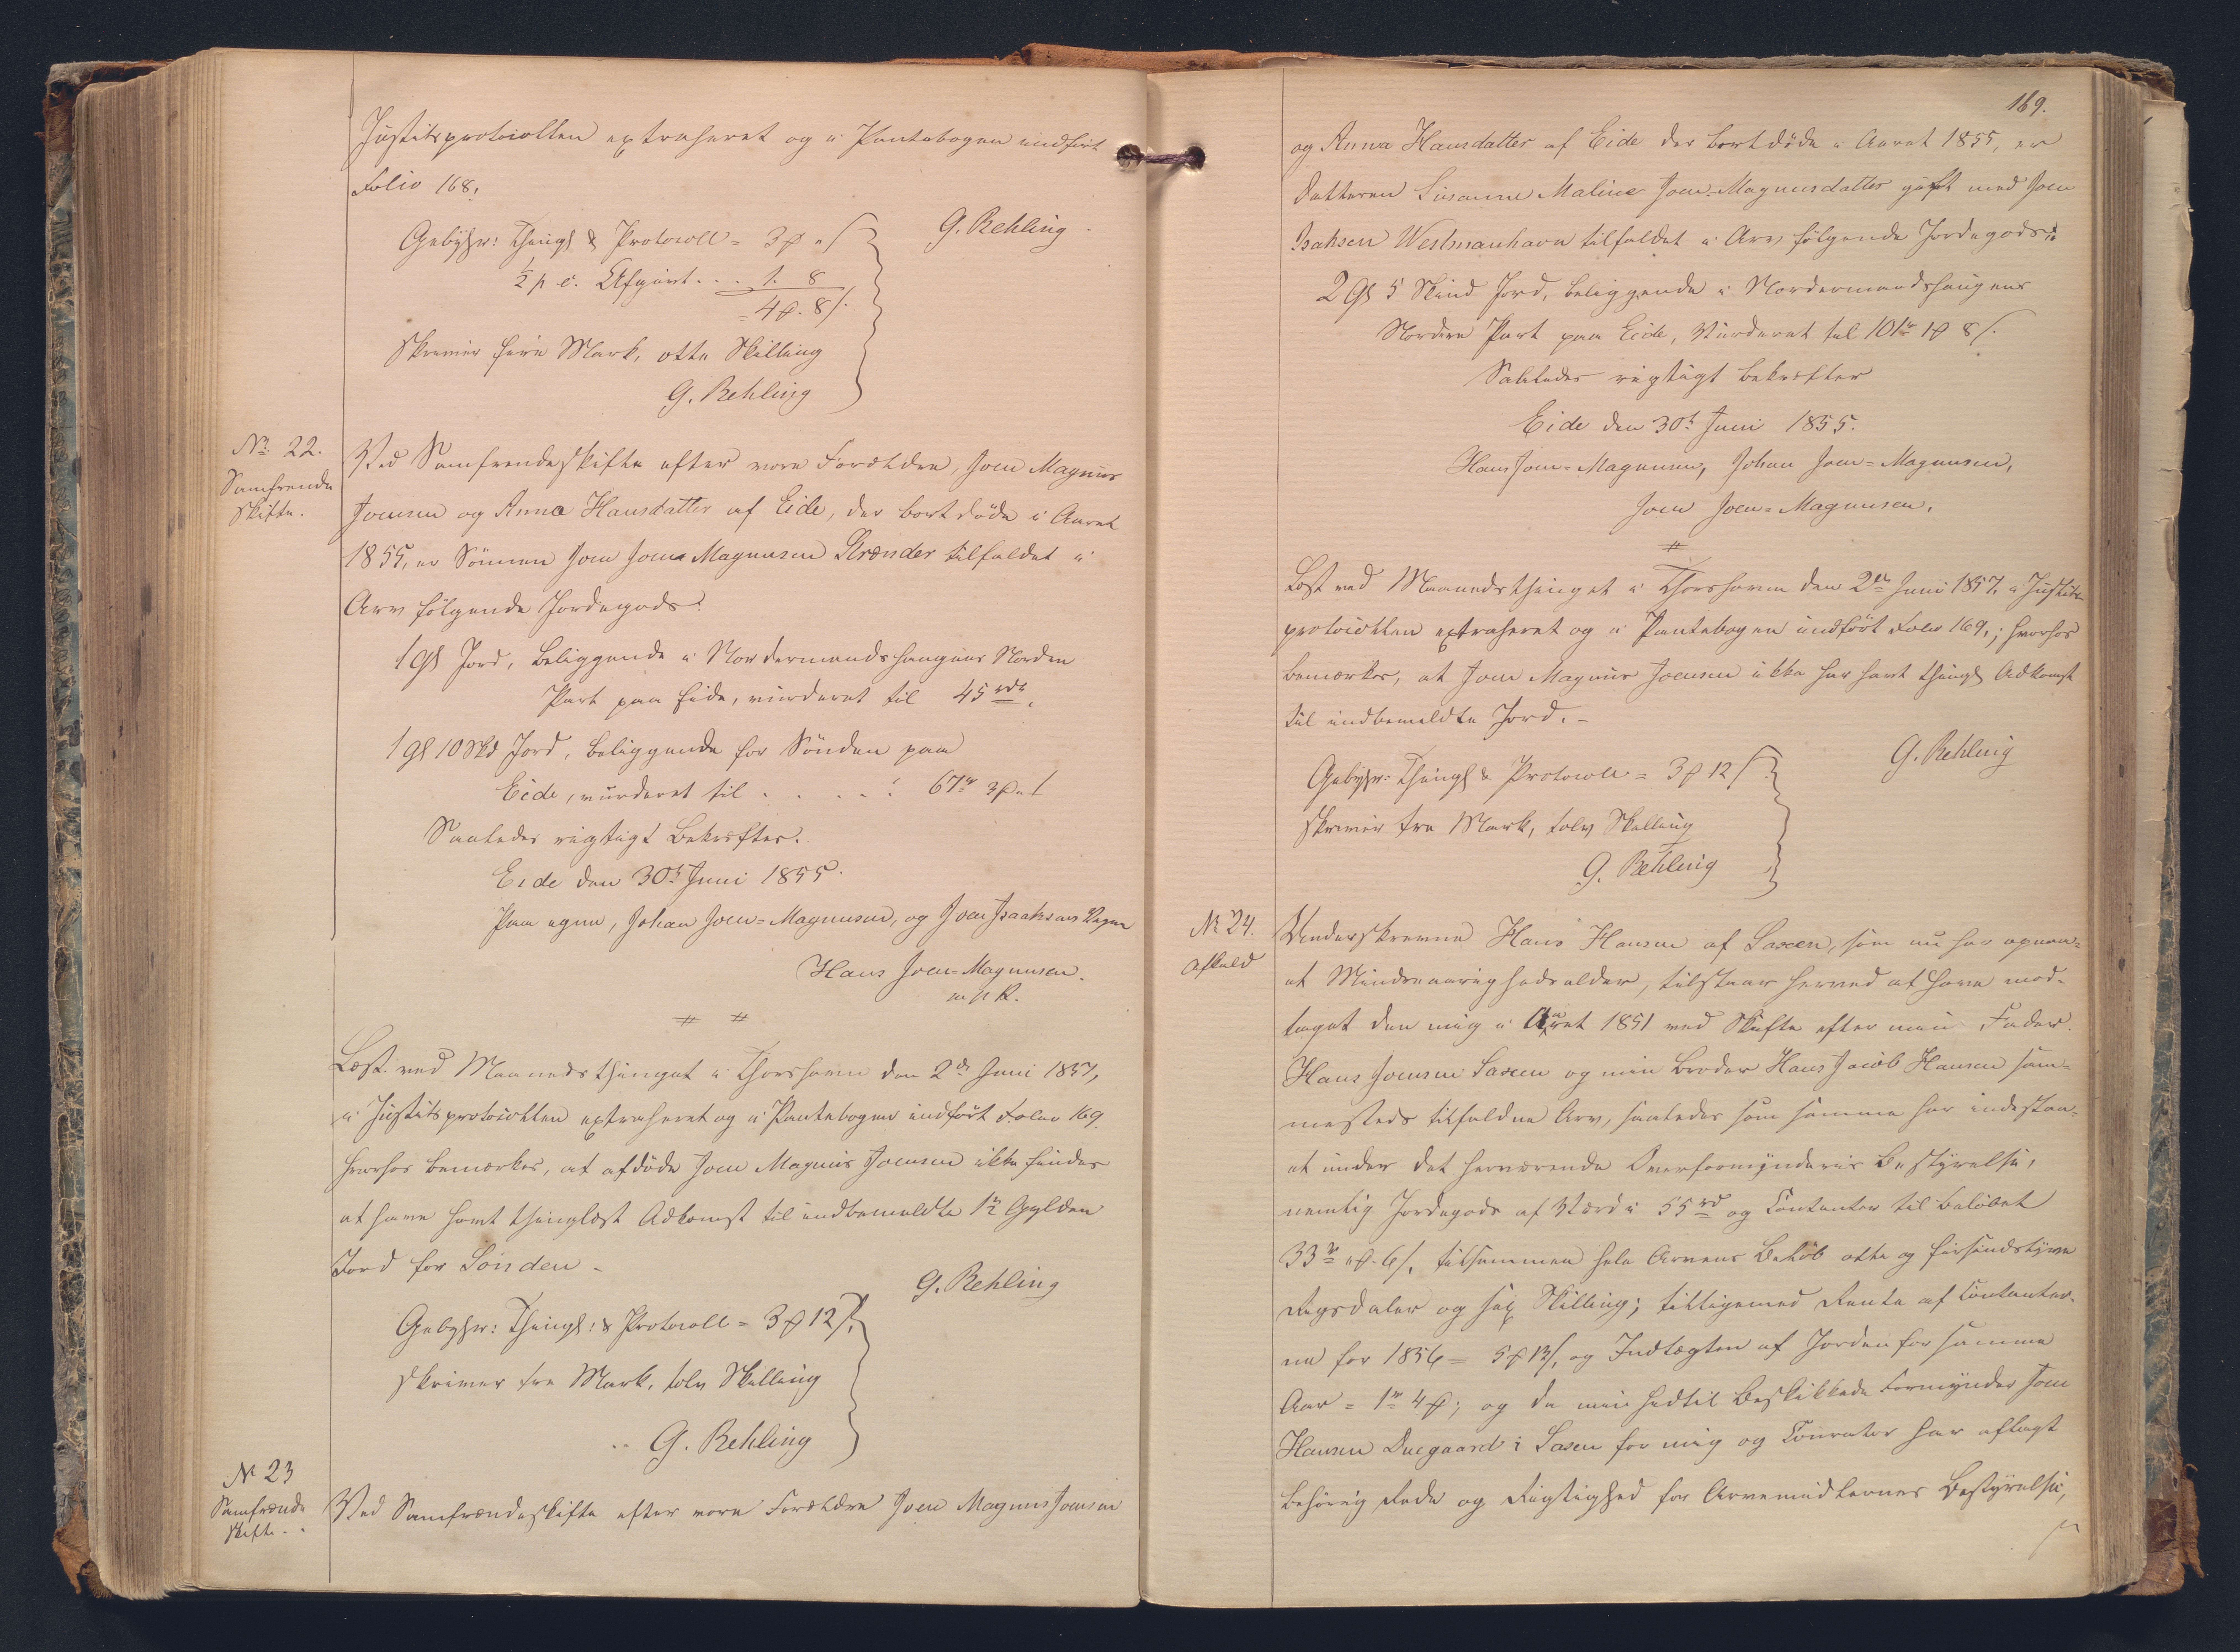 Justitsprotocollen extraheret og i Pantebogen indført
Folio 168.
Gebyhr: Thingl & Protocoll = 3 ₻ " ß
½ p. c. Afgivt . . . 1. 8
= 4 ₻. 8 ß.
skriver fire Mark, otte Skilling
G. Rehling
G. Rehling
No 22.
Samfrende
skifte.
Ved Samfrendeskifte efter vore Forældre, Joen Magnus
Joensen og Anna Hansdatter af Eide, der bortdøde i Aaret
1855, er Sönnen Joen Joen-Magnusen Strænder tilfaldet i
Arv følgende Jordegods:
1 Gl Jord, beliggende i Nordermandshaugens Norden
Part paa Eide, vurderet til 45 rdr.
1 Gl 10 Skd Jord, beliggende for Sönden paa
Eide, vurderet til . . . . : 67 rd 3 ₻ " ß
Saaledes rigtigt Bekræftes.
Eide den 30t Juni 1855.
Paa egne, Johan Joen-Magnusen, og Joen Isaaksens Vegne
Hans Joen-Magnusen.
m p R.
Læst ved Maanedsthinget i Thorshavn den 2de Juni 1857,
i Justitsprotocollen extraheret og i Pantebogen indført Folio 169.
hvorhos bemærkes, at afdöde Joen Magnus Joensen ikke findes
at have havt thinglæst Adkomst til indbemeldte 1½ Gylden
Jord for Sönden.
G. Rehling
Gebyhr: Thingl: & Protocoll = 3 ₻ 12 ß.
skriver tre Mark, tolv Skilling
G. Rehling
No 23
Samfrænde
skifte.
Ved Samfrændeskifte efter vore Forældre Joen Magnus Joensen
169.
og Anna Hansdatter af Eide der bortdöde i Aaret 1855, er
Datteren Susanne Maline Joen-Magnusdatter gift med Joen
Isaksen Westmanhavn tilfaldet i Arv følgende Jordegods:
2 Gl 5 Skind Jord, beliggende i Nordermandshaugens
Nordre Part paa Eide, Vurderet til 101 rd 1 ₻ 8 ß.
Saaledes rigtigt bekræfter
Eide den 30t Juni 1855.
Hans Joen-Magnusen, Johan Joen-Magnusen,
Joen Joen-Magnusen.
Læst ved Maanedsthinget i Thorshavn den 2den Juni 1857, i Justits
protocollen extraheret og i Pantebogen indført Folio 169,; hvorhos
bemærkes, at Joen Magnus Joensen ikke har havt thingl Adkomst
til indbemeldte Jord. -
G. Rehling
Gebyhr: Thingl & Protocoll = 3 ₻ 12 ß
skriver tre Mark, tolv Skilling
G. Rehling
No 24.
Afkald
Underskrevne Hans Hansen af Saxen, som nu har opnaa-
et Mindreaarighedsalder, tilstaar herved at have mod-
taget den mig i Aaret 1851 ved Skifte efter min Fader
Hans Joensen Saxen og min Broder Hans Jacob Hansen sam-
mesteds tilfaldne Arv, saaledes som samme har indestaa-
et under det herværende Overformynderies Bestyrelse,
nemlig Jordegods af Værdi 55 rd og Contanter til Beløbet
33 rd " ₻. 6 ß, tilsammen hele Arvens Beløb otte og fiirsindstyve
Rigsdaler og sex Skilling; tilligemed Rente af Contanter-
ne for 1856 = 5 ₻ 13 ß, og Indtægten af Jorden for samme
Aar = 1 rd 4 ₻; og da min hidtil Beskikkede Formynder Joen
Hansen Duegaard i Saxen for mig og Curator har aflagt
behörig Rede og Rigtighed for Arvemidlernes Bestyrelse,